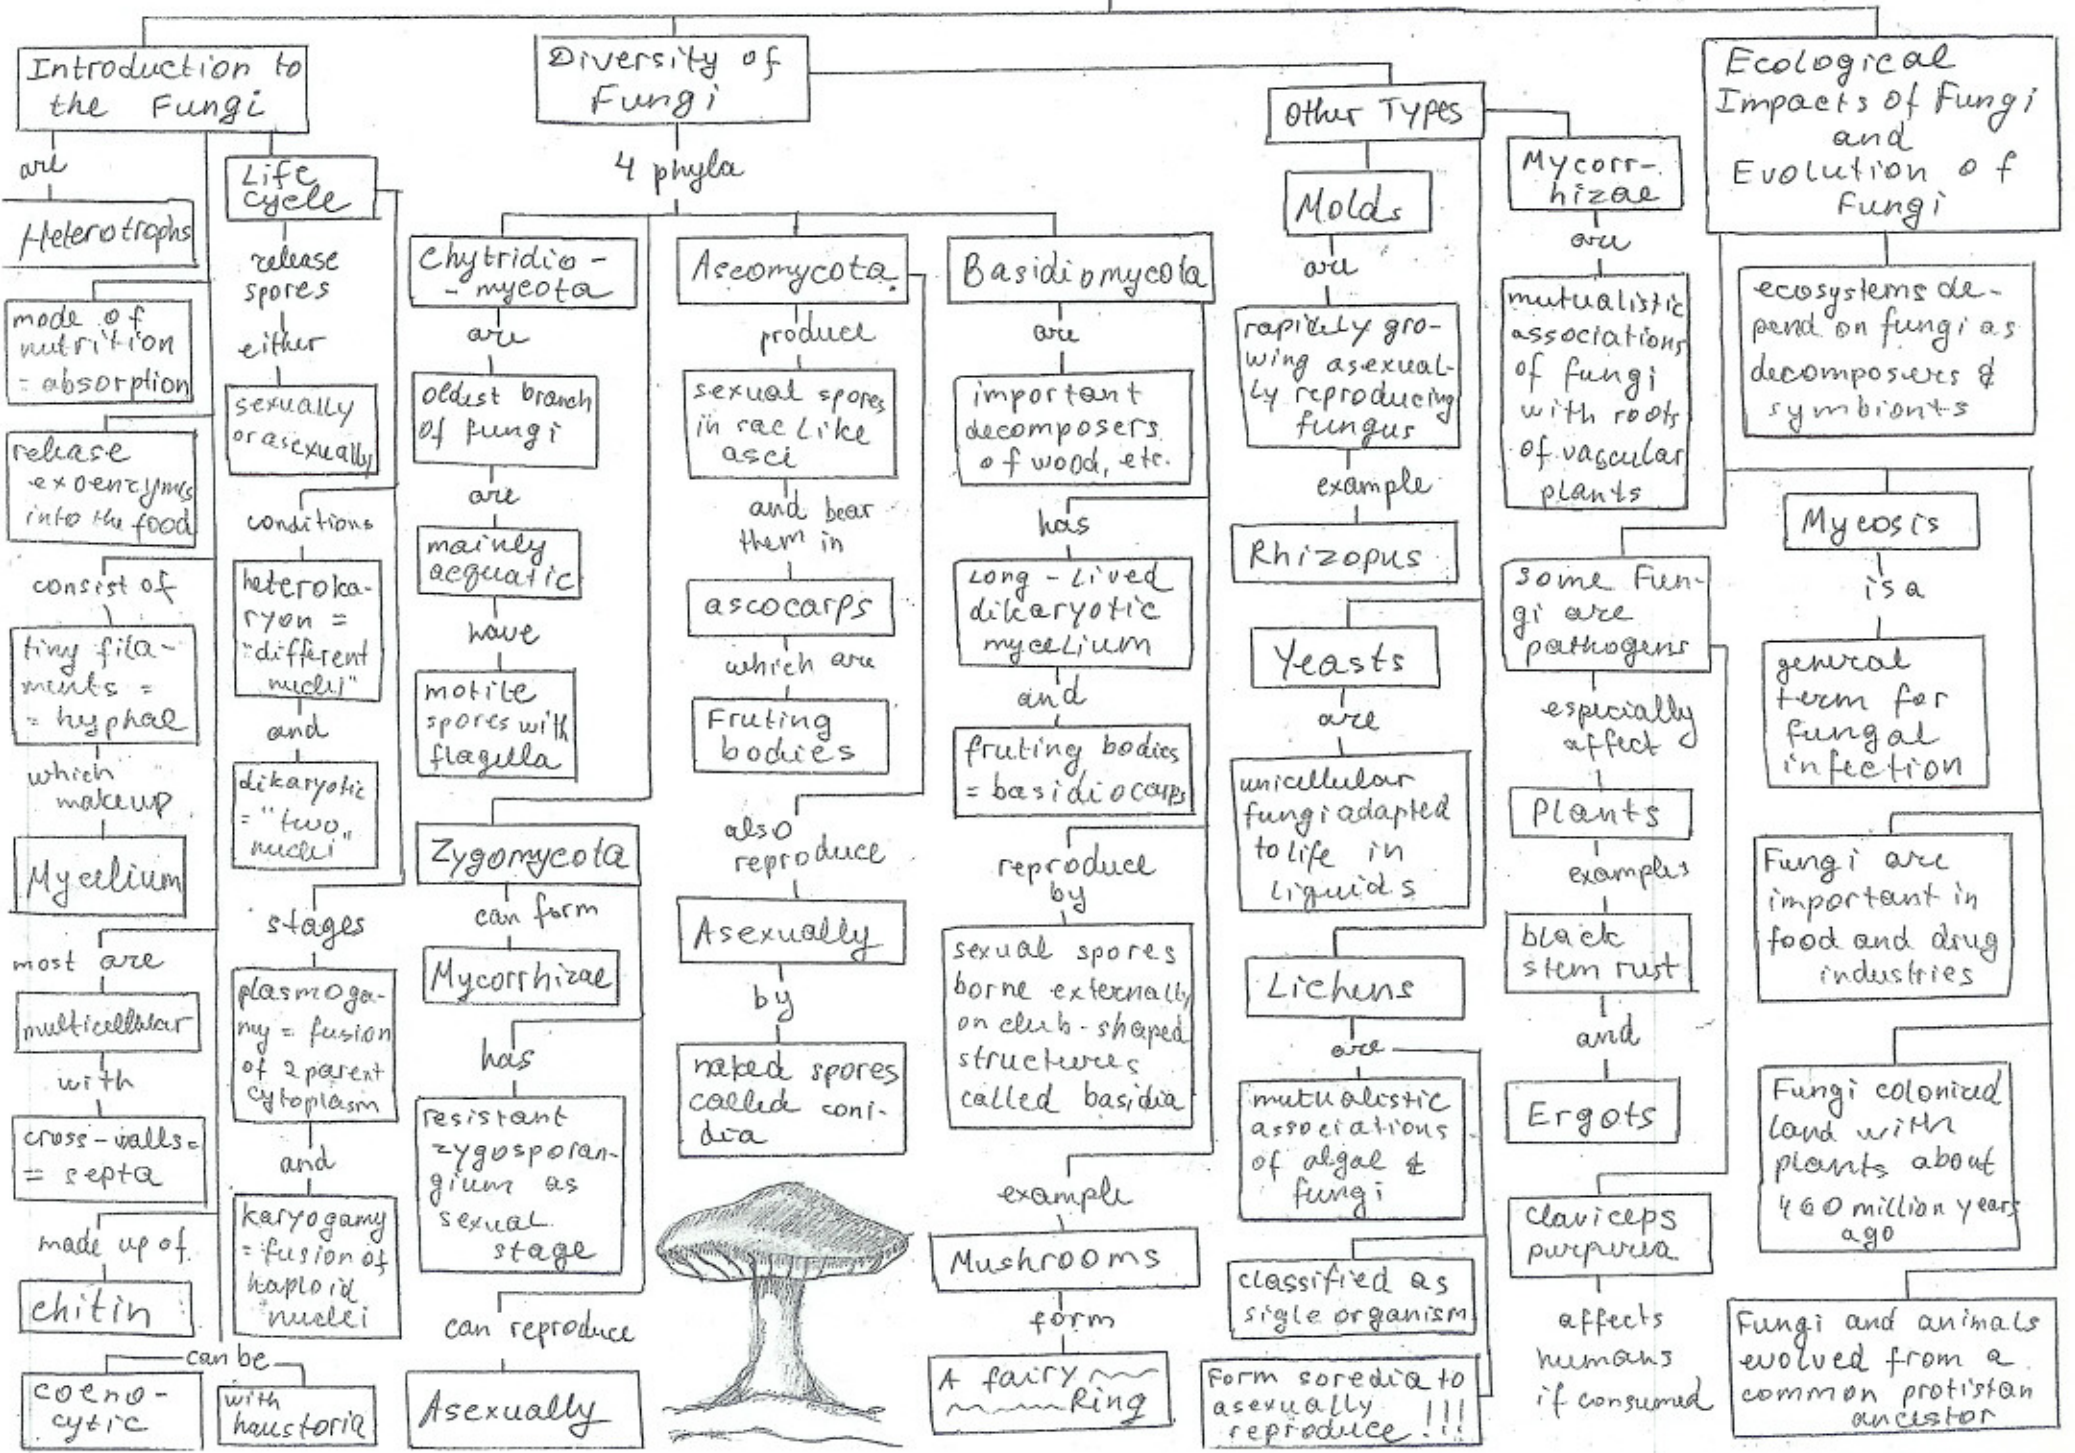 Introduction to
the Fungi
are
Heterotrophs
mode of
nutrition
= absorption
release
exoenzymes
into the food
consist of
tiny fila-
ments =
= hyphae
which
makeup
Mycelium
most are
multicellular
with
cross-walls=
= septa
made up of
chitin
can be
coeno-
cytic
with
haustoria
Life
cycle
release
spores
either
sexually
or asexually
conditions
heteroka-
ryon =
"different
nuclei"
and
dikaryotic
="two
nuclei"
stages
plasmoga-
my = fusion
of 2 parent
cytoplasm
and
karyogamy
= fusion of
haploid
nuclei
Diversity of
Fungi
4 phyla
Chytridio-
-mycota
are
oldest branch
of fungi
are
mainly
acquatic
have
motile
spores with
flagella
Zygomycota
can form
Mycorrhizae
has
resistant
zygosporan-
gium as
sexual
stage
can reproduce
Asexually
Ascomycota
produce
sexual spores
in sac like
asci
and bear
them in
ascocarps
which are
Fruting
bodies
also
reproduce
Asexually
by
naked spores
called coni-
dia
Basidiomycota
are
important
decomposers
of wood, etc.
has
Long-lived
dikaryotic
mycelium
and
fruting bodies
= basidiocarps
reproduce
by
sexual spores
borne externally
on club-shaped
structures
called basidia
example
Mushrooms
form
A fairy
Ring
Other Types
Molds
are
rapidely gro-
wing asexual-
ly reproducing
fungus
example
Rhizopus
Yeasts
are
unicellular
fungi adapted
to life in
liquids
Lichens
are
mutualistic
associations
of algae &
fungi
classified as
sigle organism
Form soredia to
asexually
reproduce !!!
Mycorr-
hizae
are
mutualistic
associations
of fungi
with roots
of vascular
plants
Ecological
Impacts of Fungi
and
Evolution of
Fungi
ecosystems de-
pend on fungi as
decomposers &
symbionts
some Fun-
gi are
pathogens
especially
affect
Plants
examples
black
stem rust
and
Ergots
claviceps
purpurea
affects
humans
if consumed
Mycosis
is a
general
term for
fungal
infection
Fungi are
important in
food and drug
industries
Fungi colonized
land with
plants about
460 million years
ago
Fungi and animals
evolved from a
common protistan
ancestor